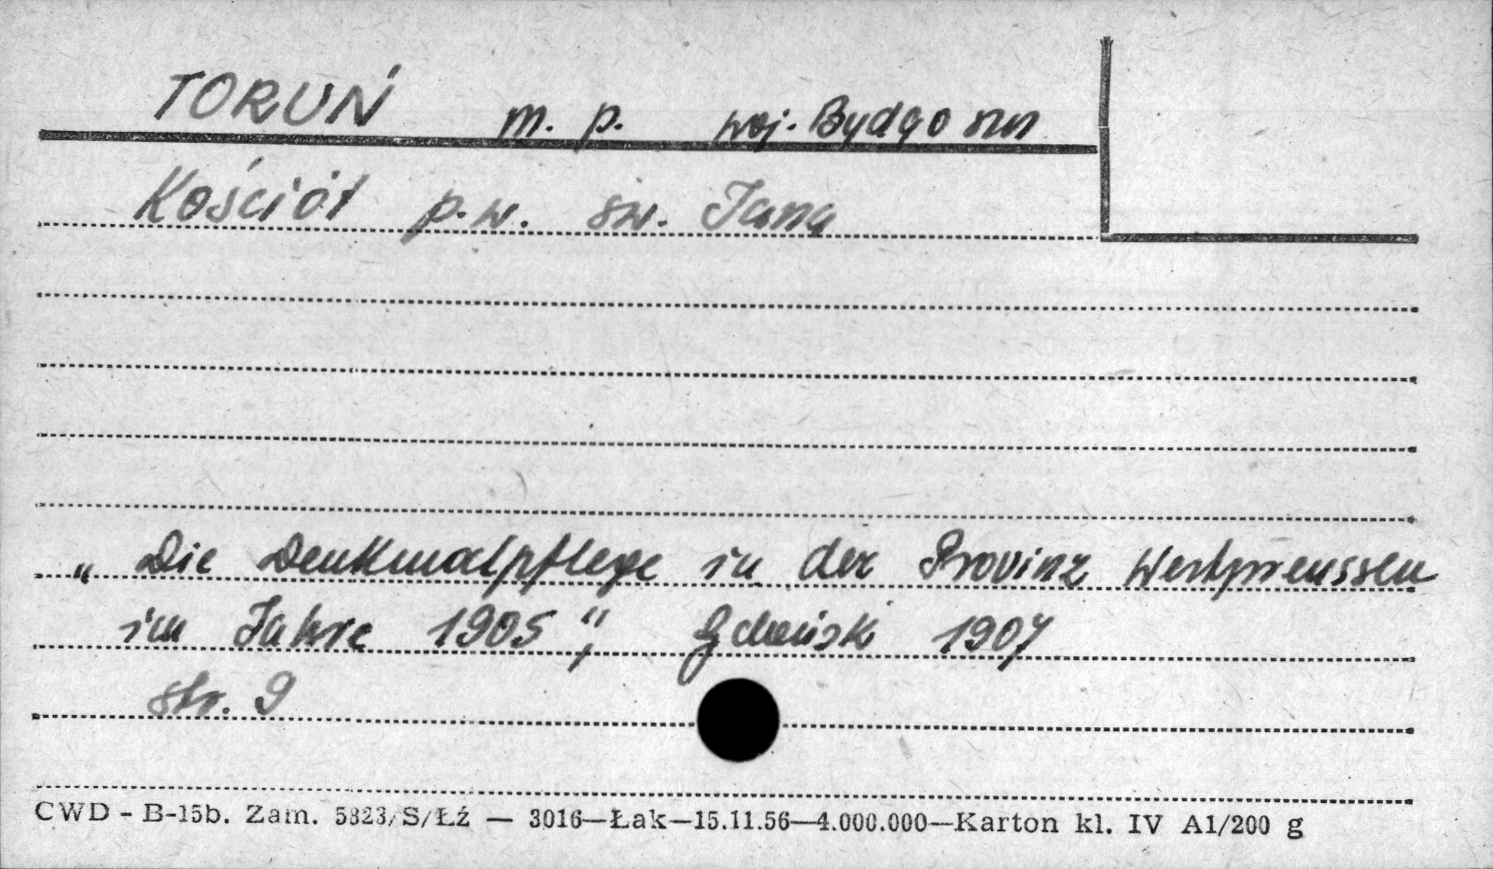 TORUŃ m. p. woj. Bydgoszcz
Kościół p.w. św. Jana
„Die Denkmalpflege in der Provinz Westpreussen
im Jahre 1905", Gdańsk 1907
str. 9
CWD - B-15b. Zam. 5823/S/Łź — 3016—Łak—15.11.56—4.000.000—Karton kl. IV A1/200 g